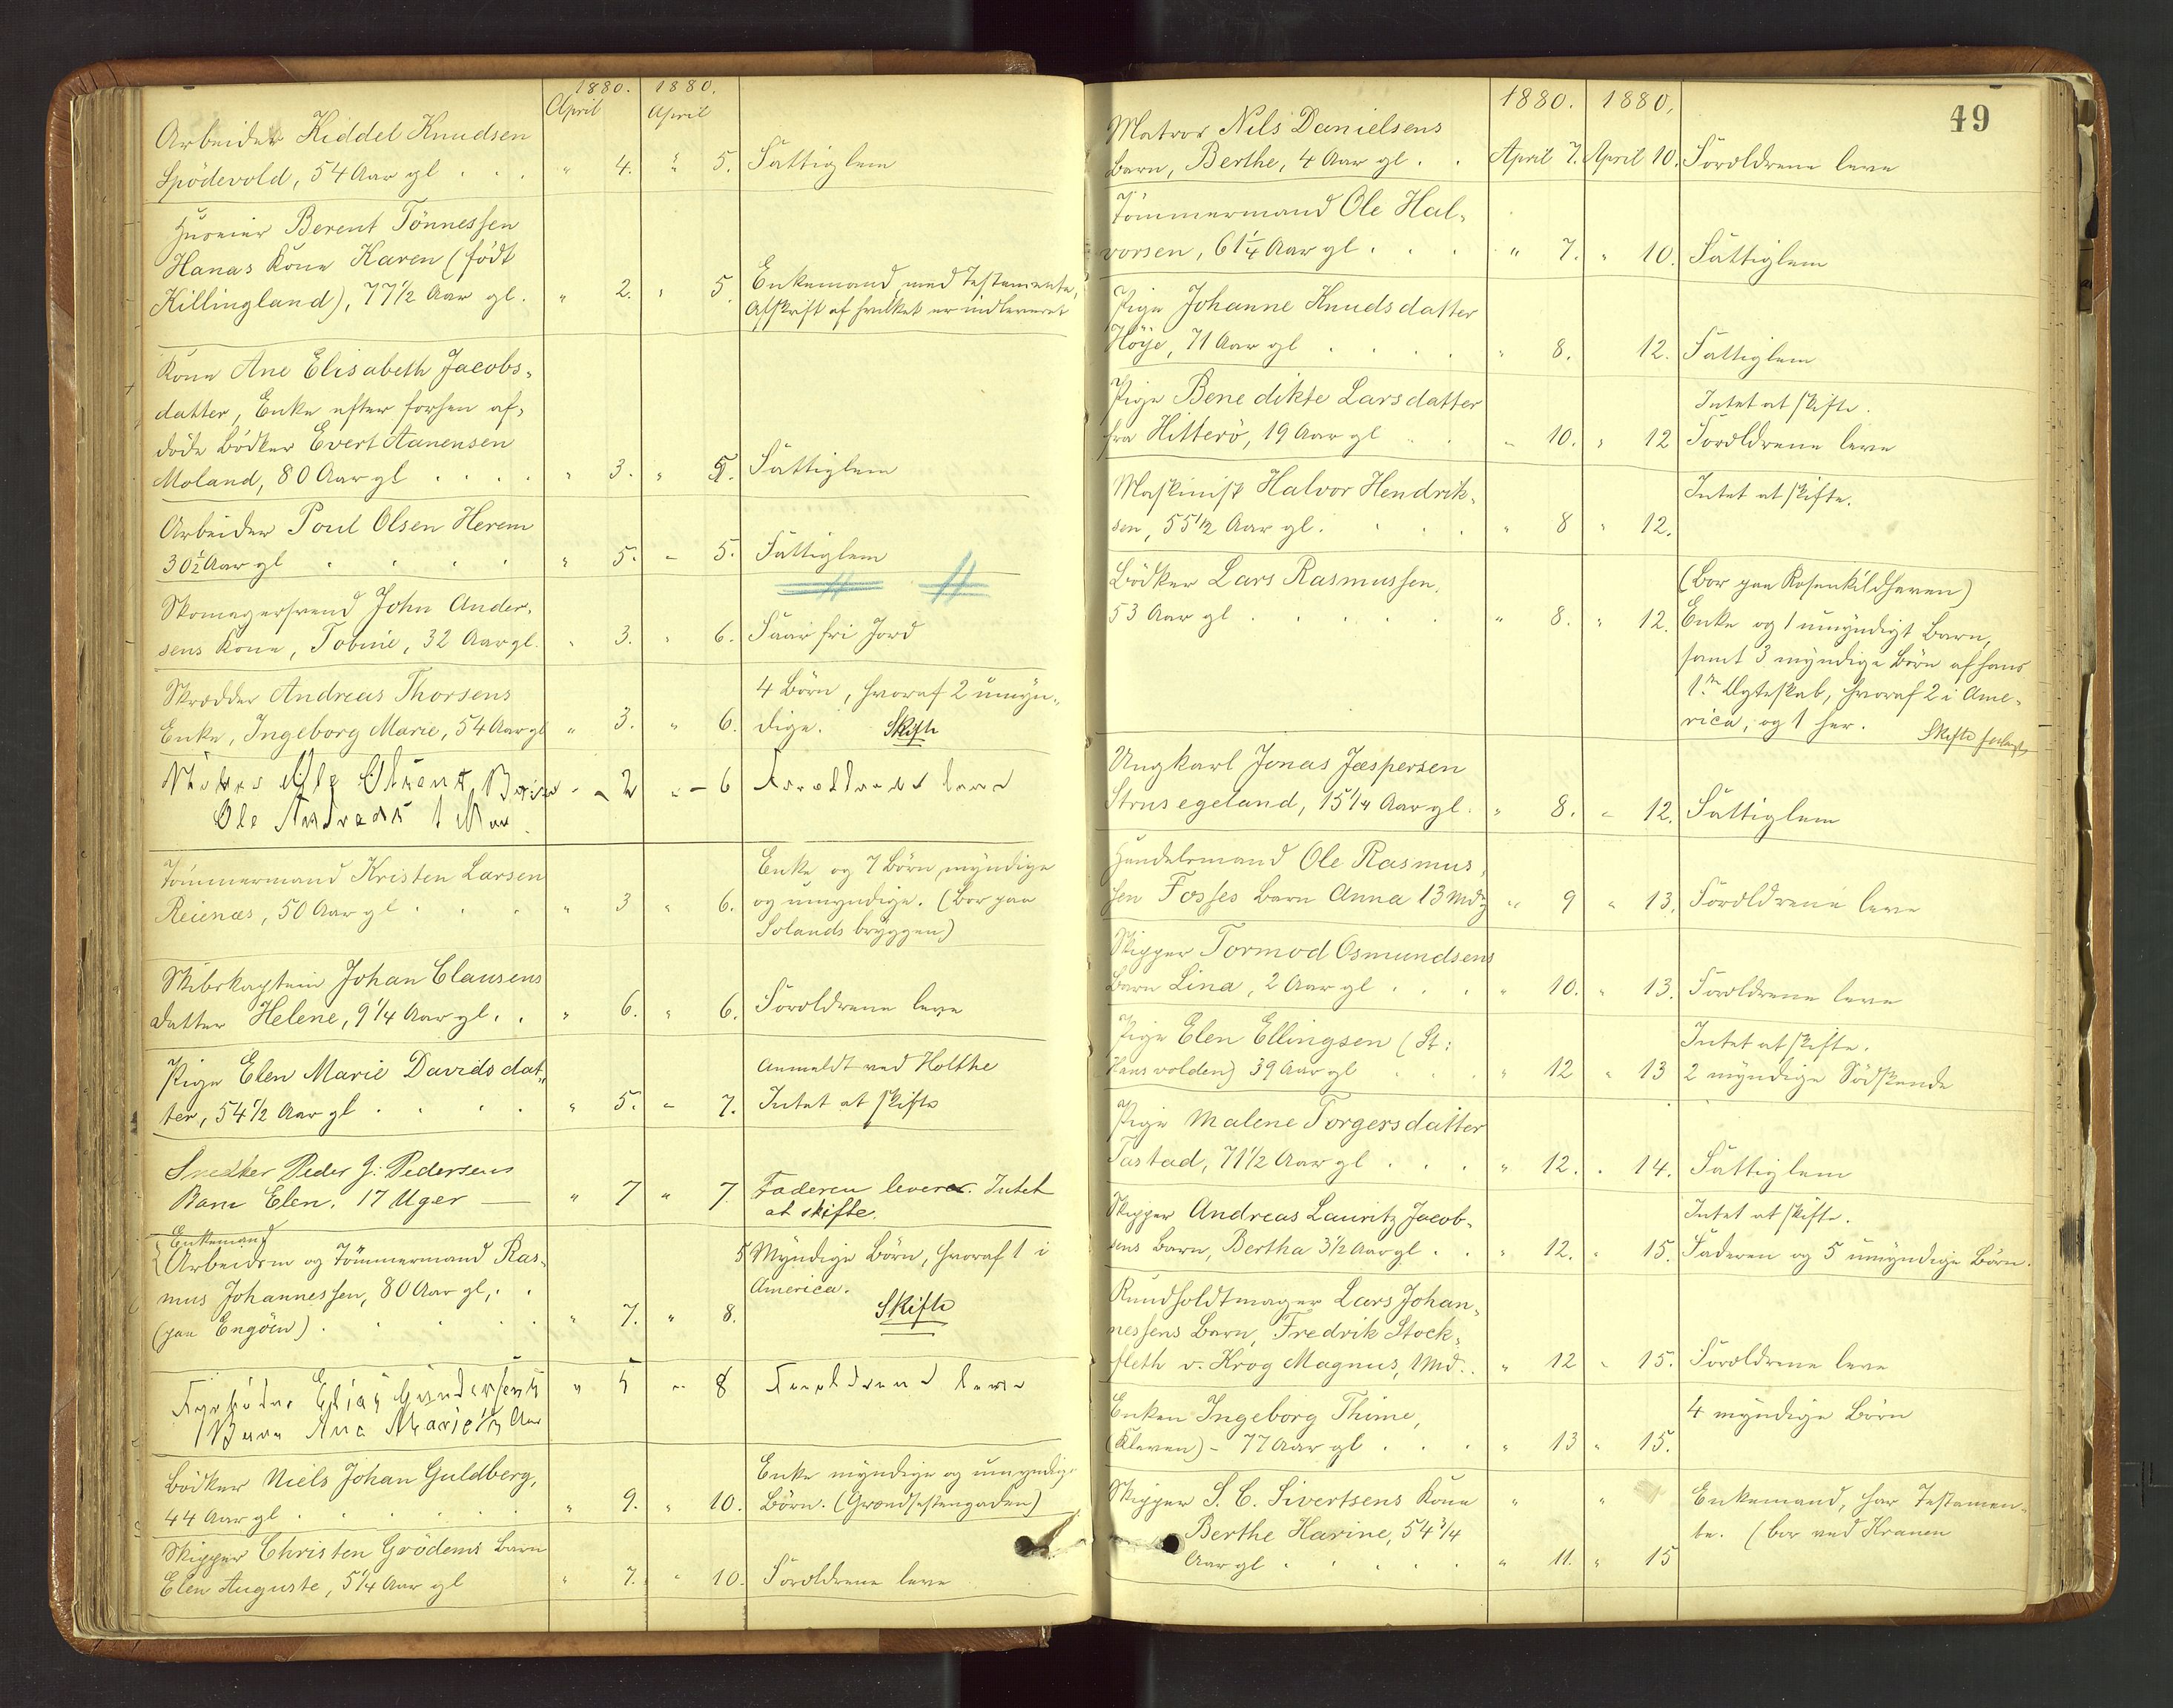 1880. 1880.
April April
Arbeider Kiddel Knudsen
Spödevold, 54 Aar gl . . . " 4. " 5. Fattiglem
Huseier Berent Tönnessen
Hanas Kone Karen (født
Killingland), 77 1/2 Aar gl. " 2. " 5. Enkemand med Testamente,
Afskrift af hvilket er indleveret
Kone Ane Elisabeth Jacobs-
datter, Enke efter forhen af-
døde Bødker Evert Aanensen
Moland, 80 Aar gl . . . . " 3. " 5. Fattiglem
Arbeider Poul Olsen Herem
30 1/2 Aar gl . . . . " 5. " 5. Fattiglem
Skomagersvend John Ander-
sens Kone, Tobine, 32 Aar gl. " 3. " 6. Faar fri Jord
Skrædder Andreas Thorsens
Enke, Ingeborg Marie, 54 Aar gl " 3. " 6. 4 Børn, hvoraf 2 umyn-
dige. Skifte
Ole Barn " 2 " 6 Forældrene leve
Ole Andreas 1 Aar
Tömmermand Kristen Larsen
Reienæs, 50 Aar gl . . . " 3 " 6. Enke og 7 Børn myndige
og umyndige. (Bor paa
Solandsbryggen)
Skibskaptein Johan Clausens
datter Helene, 9 1/4 Aar gl. . " 6. " 6. Forældrene leve
Pige Elen Marie Davidsdat-
ter, 54 1/2 Aar gl . . . . " 5. " 7. Anmeldt ved Holthe
Intet at skifte
Snedker Peder J. Pedersens
Barn Elen. 17 Uger — " 7 " 7. Faderen lever. Intet
at skifte.
Enkemand
Arbeidsm og Tömmermand Ras-
mus Johannessen, 80 Aar gl, . .
(paa Engöen) . . . . " 7. " 8. 5 Myndige Børn, hvoraf 1 i
America.
Skifte
Fyrbøder Elias Gundersens " 5 " 8 Forældrene leve
Barn Ane Marie 1/2 Aar
Bødker Niels Johan Guldberg,
44 Aar gl . . . . . " 9. " 10. Enke myndige og umyndige
Børn. (Grøndsestengaden)
Skipper Christen Grödems Barn
Elen Auguste, 5 1/4 Aar gl " 7. " 10. Forældrene leve
49
1880. 1880.
Matros Nils Danielsens
Barn, Berthe, 4 Aar gl . . April 7. April 10. Forældrene leve
Tömmermand Ole Hal-
vorsen, 61 1/4 Aar gl . . . " 7. " 10. Fattiglem
Pige Johanne Knudsdatter
Höje, 71 Aar gl . . . . " 8. 12. Fattiglem
Pige Benedikte Larsdatter
fra Hitterö, 19 Aar gl . . " 10. " 12 Intet at skifte.
Forældrene leve
Maskinist Halvor Hendrik-
sen, 55 1/2 Aar gl. . . . " 8 " 12. Intet at skifte.
Bødker Lars Rasmussen,
53 Aar gl . . . . . " 8. " 12. (Bor paa Rosenkildhaven)
Enke og 1 umyndigt Barn,
samt 3 myndige Børn af hans
1ste Ægteskab, hvoraf 2 i Ame-
rica, og 1 her. Skifte
Ungkarl Jonas Jæspersen
Strusegeland, 15 1/4 Aar gl. " 8. " 12. Fattiglem
Handelsmand Ole Rasmus-
sen Fosses Barn Anna 13 Mdr " 9 " 13. Forældrene leve
Skipper Tormod Osmundsens
Barn Lina, 2 Aar gl . . . " 10. " 13. Forældrene leve
Pige Elen Ellingsen (St:
Hansvolden) 39 Aar gl . . " 12 " 13 Intet at skifte.
2 myndige Södskende
Pige Malene Torgersdatter
Tastad, 71 1/2 Aar gl . . . " 12. " 14. Fattiglem
Skipper Andreas Lauritz Jacob-
sens Barn, Bertha 3 1/2 Aar gl . . " 12. " 15. Intet at skifte.
Faderen og 5 umyndige Børn.
Rundholdtmager Lars Johan-
nessens Barn, Fredrik Stock-
fleth v. Krog Magnus, 1 Md. . " 12 " 15. Forældrene leve
Enken Ingeborg Thime,
(Kleven) - 77 Aar gl . . . " 13 " 15. 4 myndige Børn
Skipper S. C. Sivertsens Kone " "
Berthe Karine, 54 3/4
Aar gl . . . . . " 11. " 15 Enkemand, har Testamen-
te. (bor ved Kranen